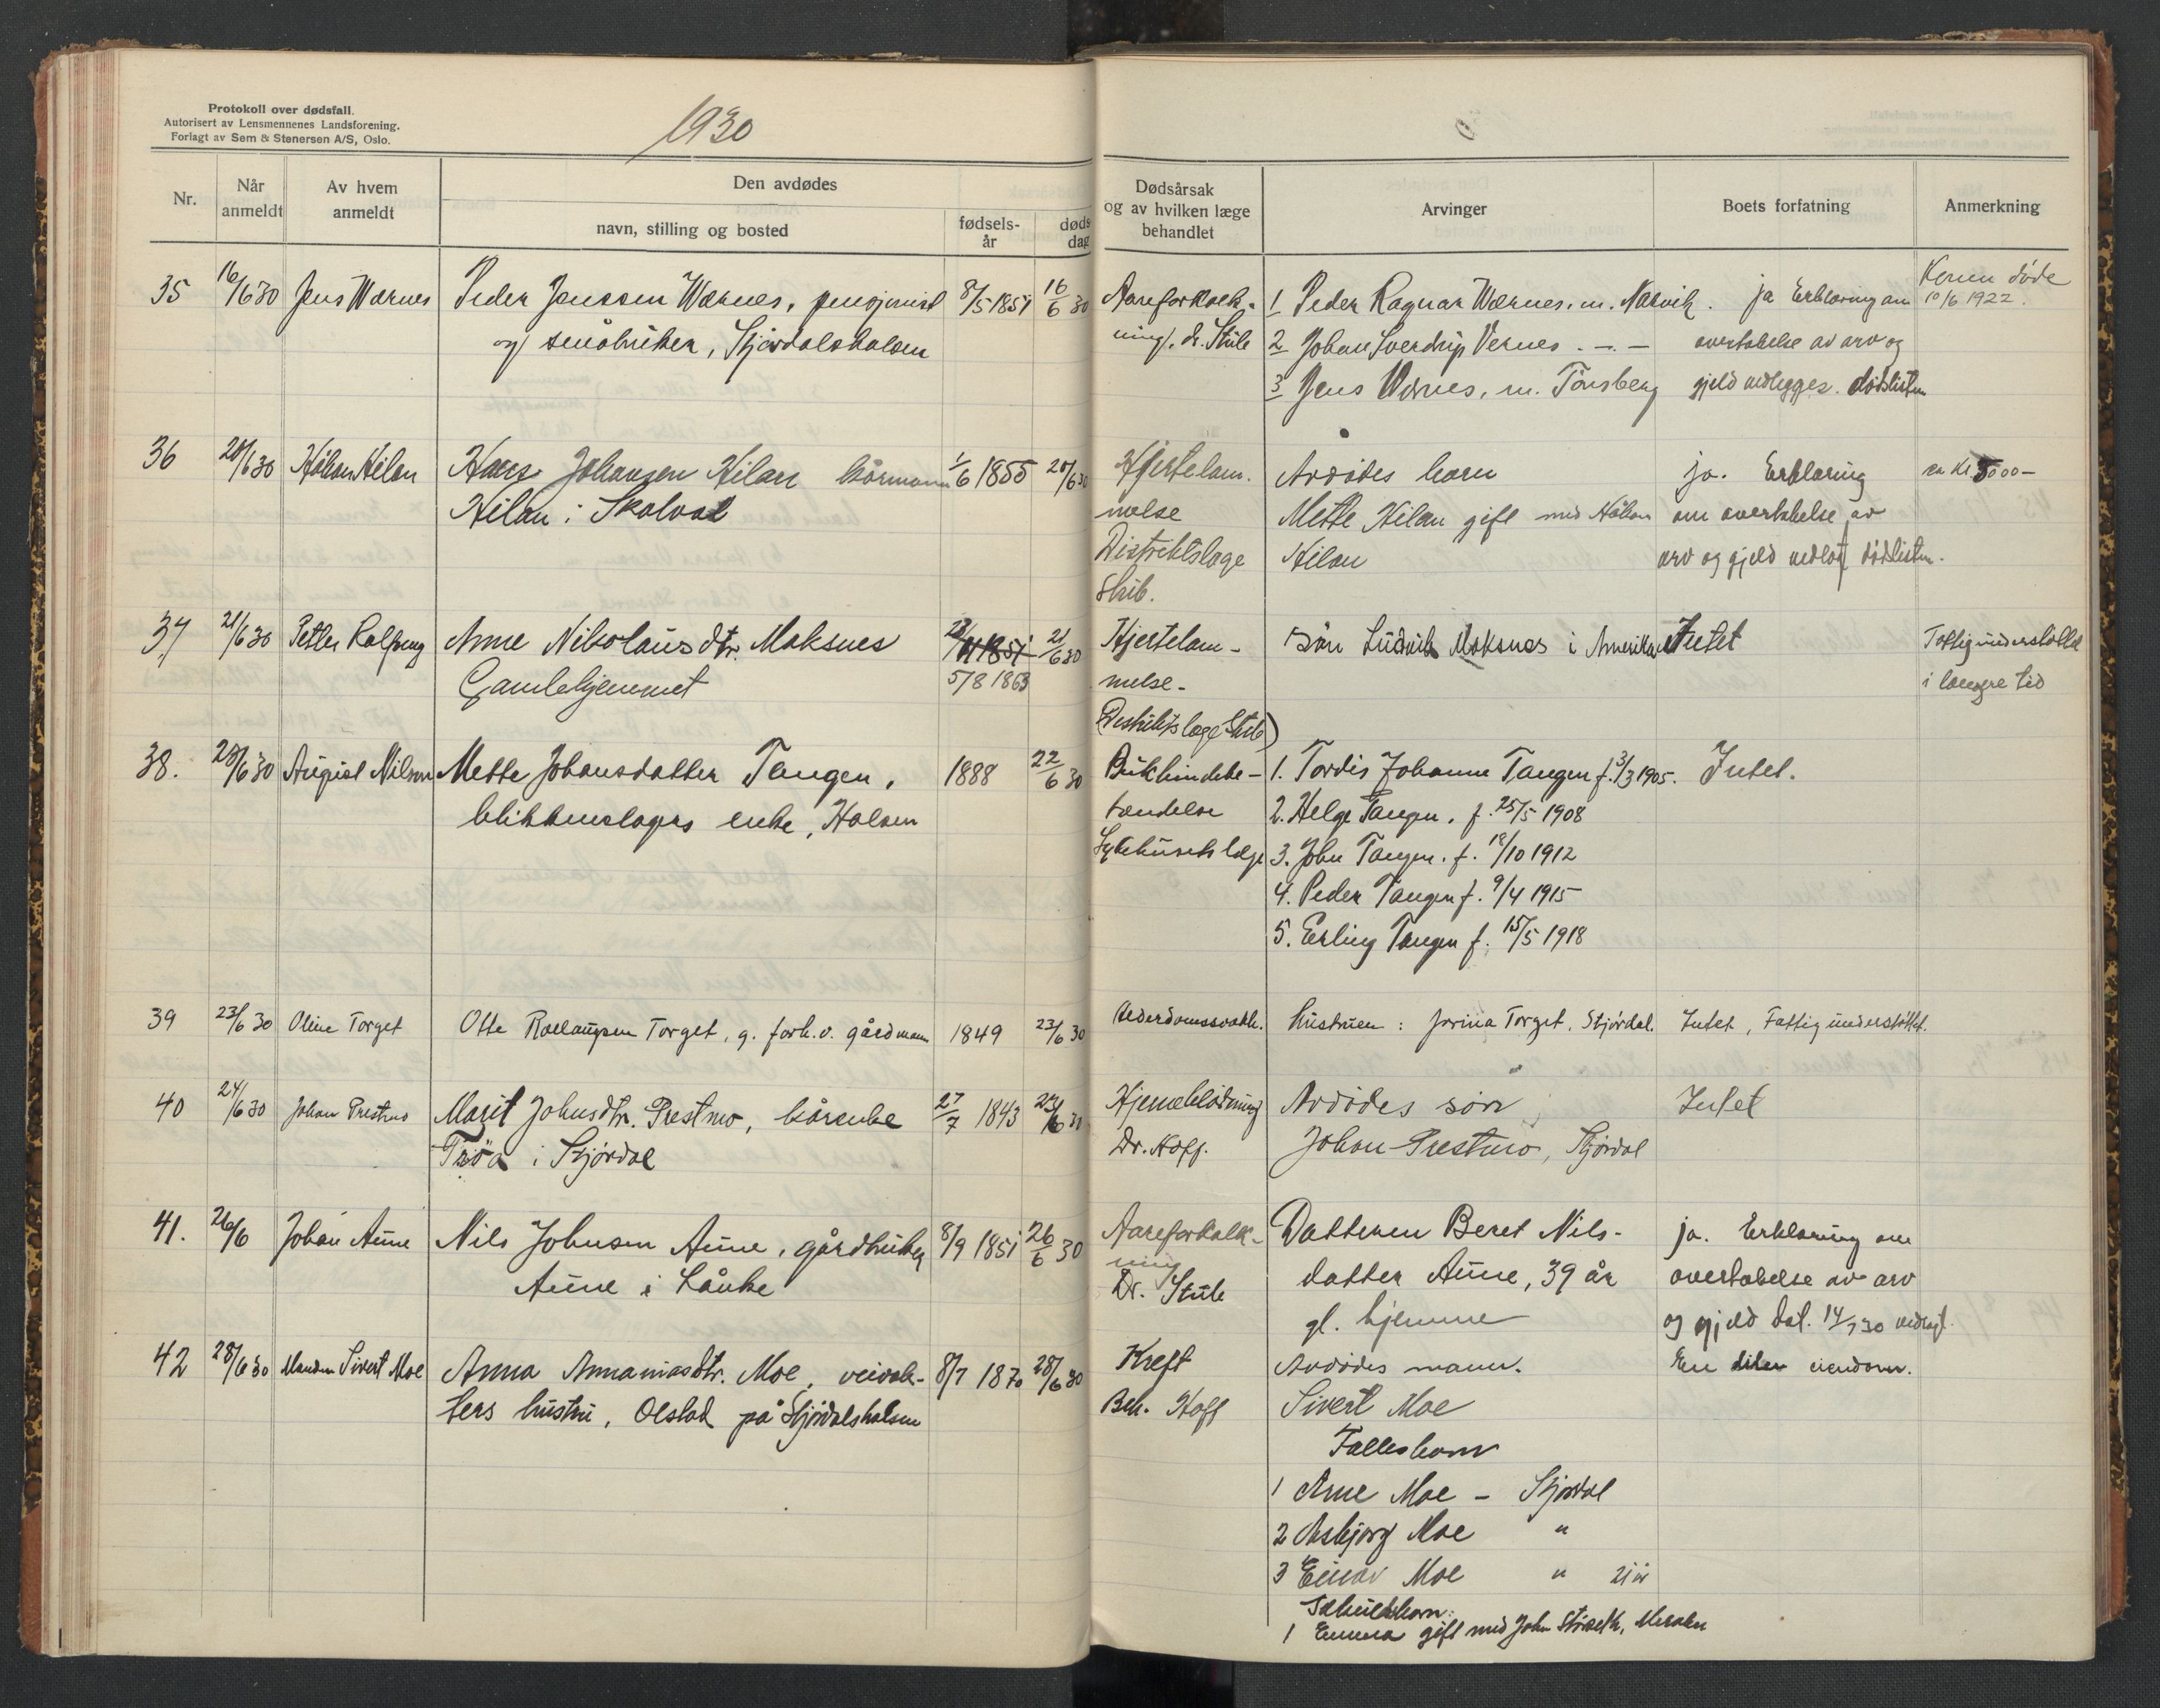 Protokoll over dødsfall.
Autorisert av Lensmennenes Landsforening.
Forlagt av Sem & Stenersen A/S, Oslo.
1930
Nr.
Når anmeldt
Av hvem anmeldt
Den avdødes
navn, stilling og bosted
fødsels-år
døds dag
Dødsårsak og av hvilken læge behandlet
Arvinger
Boets forfatning
Anmerkning
35 16/6 30 Jens Wærnes Peder Jenssen Wærnes, pensjonist 8/5 1851 16/6 30 Aareforkalk- 1 Peder Ragnar Wærnes, m. Narvik. ja Erklæring om Konen døde
og småbruker, Stjørdalshalsen ning, dr. Stub 2 Johan Sverdrup Vernes - " - overtakelse av arv og 10/6 1922.
3 Jens Wærnes, m. Tønsberg gjeld vedlegges dødslisten
36 20/6 30 Håkon Hilan Hans Johansen Hilan kårmann 1/6 1855 20/6 30 Hjertelam- Avdødes barn ja. Erklæring ca kr. 5000-
Hilan i Skatval melse Mette Hilan gift med Håkon om overtakelse av
Distriktslæge Hilan arv og gjeld vedlagt dødslisten.
Stub.
37 21/6 30 Petter Anne Nikolausdtr. Moksnes 1851 21/6 30 Hjertelam- Søn Ludvik Moksnes i Amerika Intet Fattigunderstøttet
Gamlehjemmet 5/8 1863 melse- i længre tid
(Distriktslæge Stub)
38. 23/6 30 August Nilsen Mette Johansdatter Tangen, 1888 22/6 30 Bukhindebe- 1. Tordis Johanne Tangen f. 3/3 1905. Intet.
blikkenslagers enke, Halsen tændelse 2. Helge Tangen, f. 25/5 1908
Sykehusets læge 3. John Tangen. f. 18/10 1912
4. Peder Tangen f. 9/4 1915
5. Erling Tangen f. 15/5 1918
39 23/6 30 Oline Torget Otte Torget, g. forh.v. gårdmann 1849 23/6 30 Alderdomssvakh. hustruen: Jorina Torget, Stjørdal. Intet, Fattigunderstøttet.
40 24/6 30 Johan Prestmo Marit Johnsdtr. Prestmo, kårenke 27/7 1843 /6 30 Hjerneblødning Avdødes søn Intet
Trøa i Stjørdal Dr. Hoff. Johan Prestmo, Stjørdal
41. 26/6 Johan Aune Nils Johnsen Aune, gårdbruker 8/9 1851 26/6 30 Aareforkalk- Datteren Beret Nils- ja. Erklæring om
Aune i Lånke ning datter Aune, 39 år overtakelse av arv
Dr. Stub gl. hjemme og gjeld dat. 14/7 30 vedlagt.
42 28/6 30 Manden Sivert Moe Anna Annaniasdtr. Moe, veivok- 8/7 1870 28/6 30 Kreft Avdødes mann. En liten eiendom.
ters hustru, Olstad på Stjørdalshalsen Beh. Hoff Sivert Moe
Fellesbarn
1 Arne Moe - Stjørdal
2 Asbjørg Moe "
3 Einar Moe " 21 år
Særkullsbarn:
1 Emma gift med John Meraker